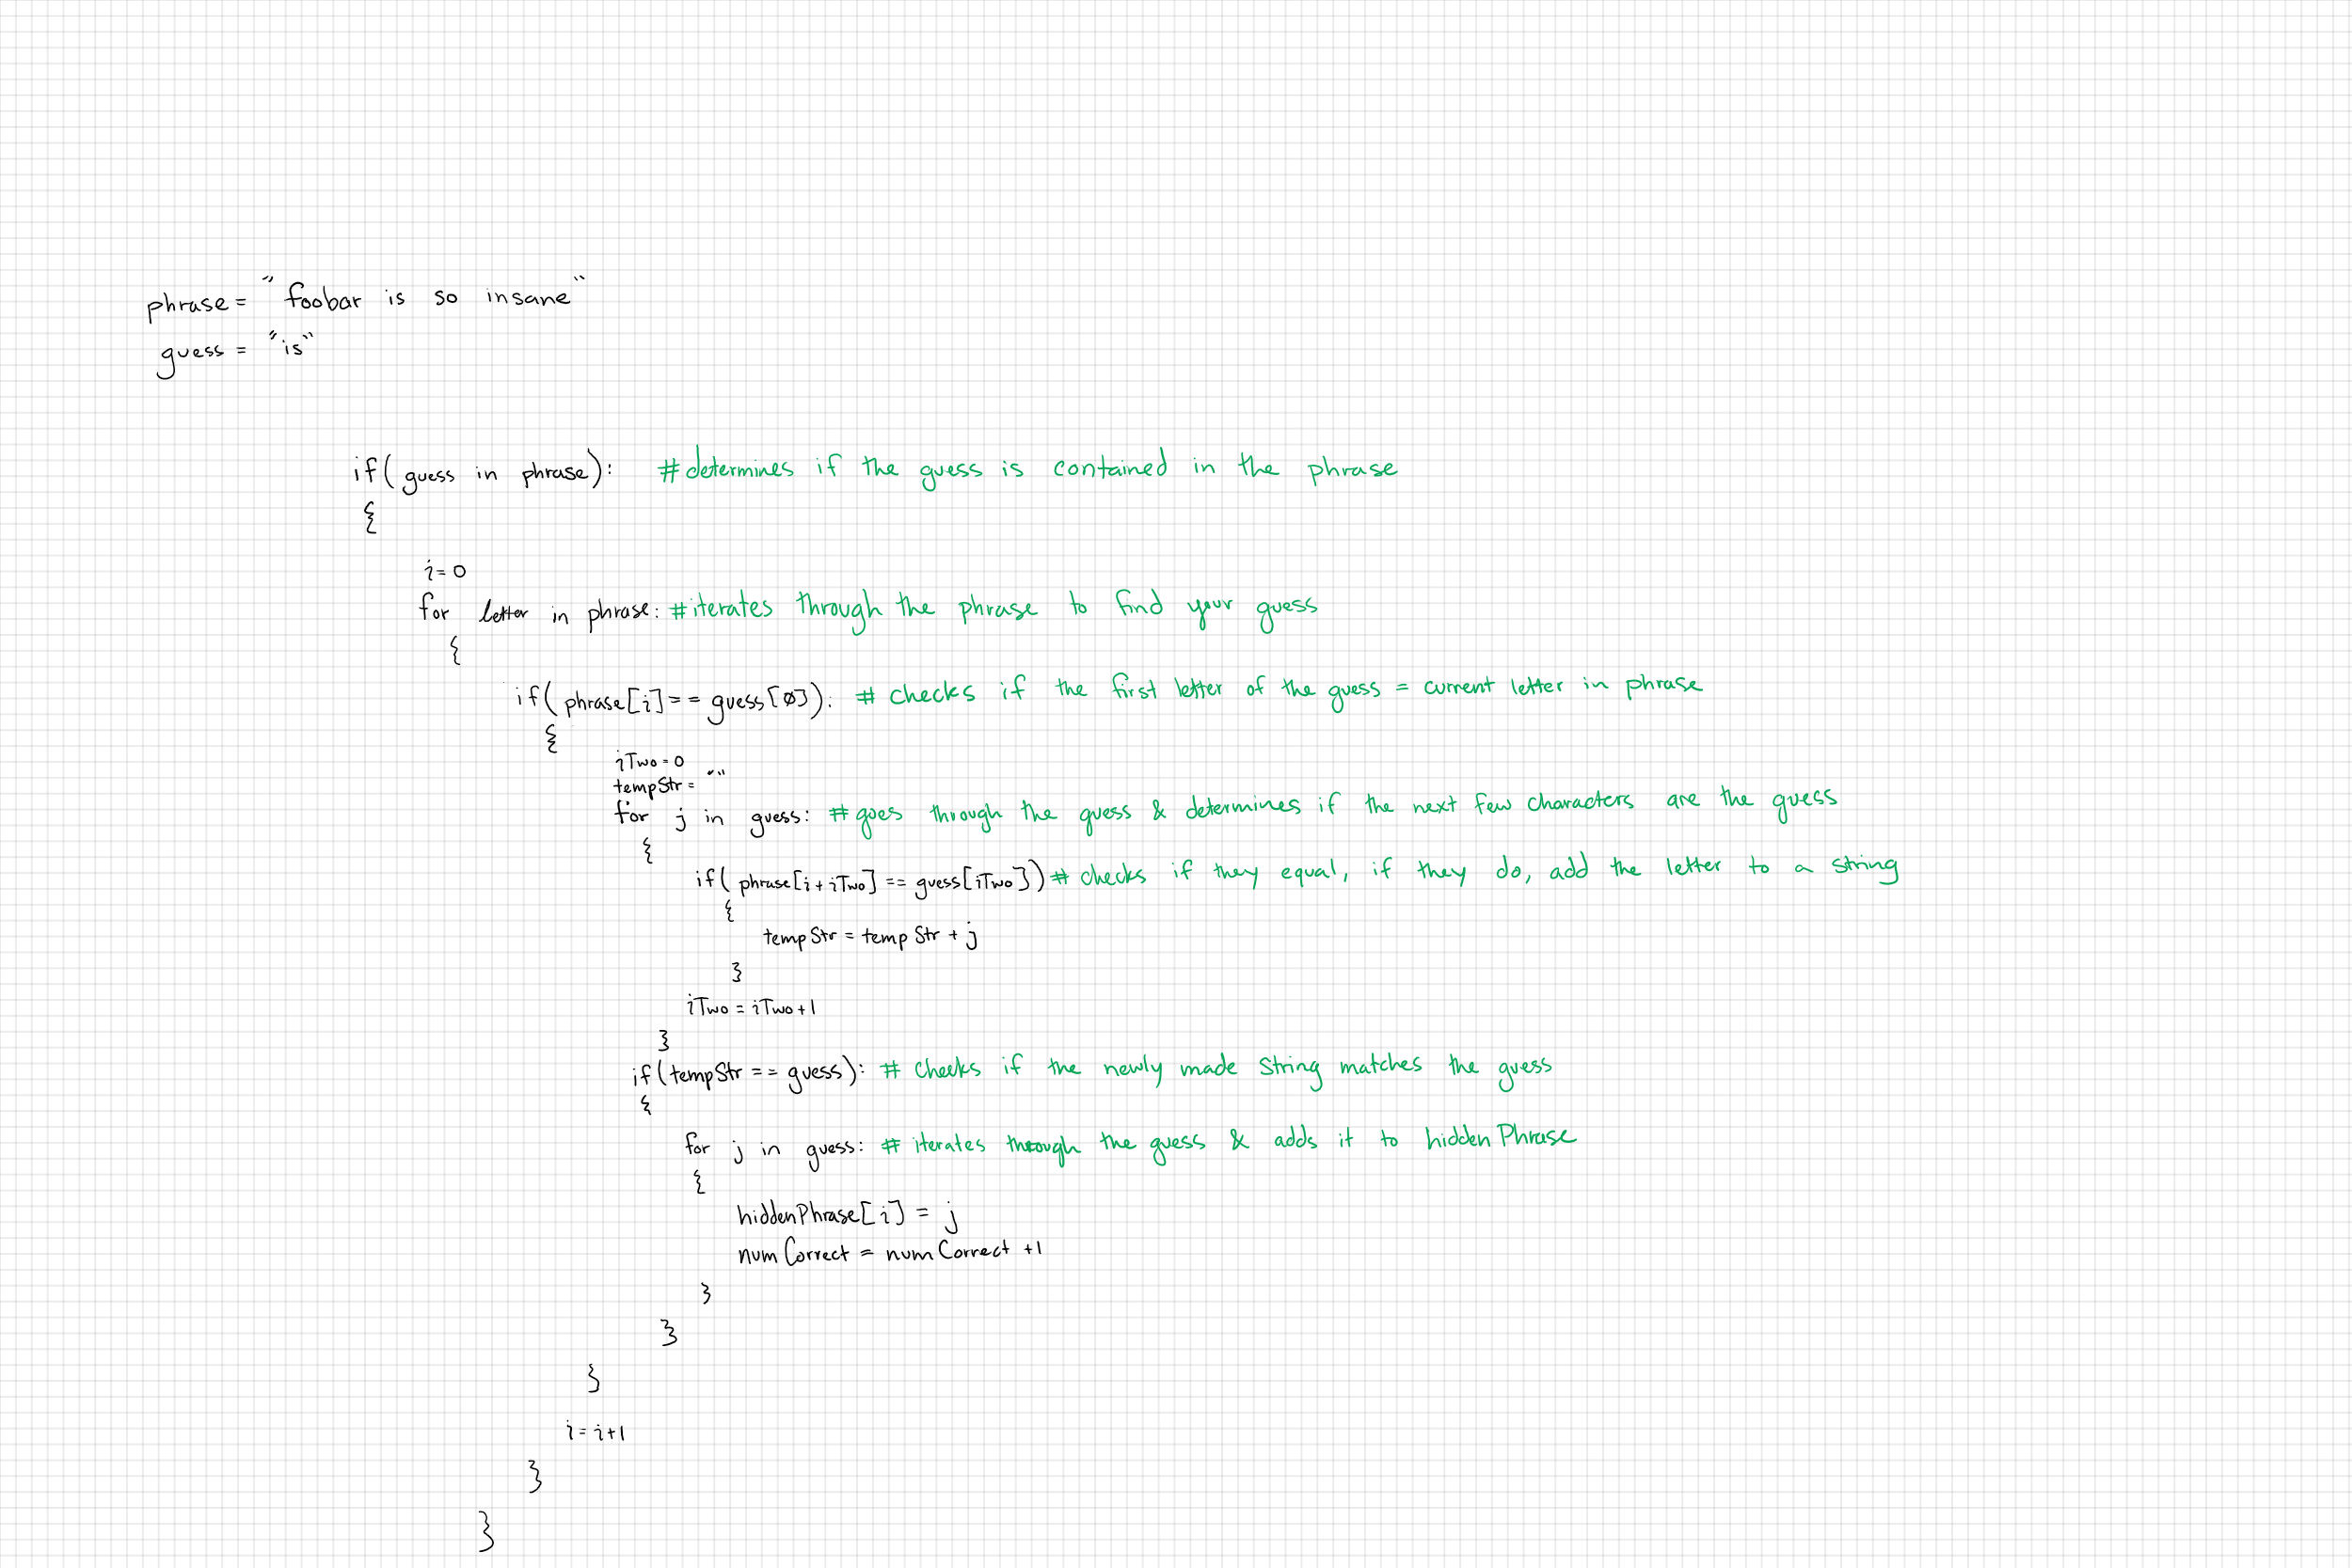 phrase = "foobar is so insane"
guess = "is"
if(guess in phrase): #determines if the guess is contained in the phrase
{
i=0
for letter in phrase: #iterates through the phrase to find your guess
{
if(phrase[i]== guess[0]): # checks if the first letter of the guess = current letter in phrase
{
iTwo=0
tempStr= ""
for j in guess: #goes through the guess & determines if the next few characters are the guess
{
if(phrase[i+iTwo] == guess[iTwo])# checks if they equal, if they do, add the letter to a string
{
tempStr = tempStr + j
}
iTwo = iTwo+1
}
if(tempStr == guess): # checks if the newly made String matches the guess
{
for j in guess: # iterates through the guess & adds it to hiddenPhrase
{
hiddenPhrase[i] = j
numCorrect = numCorrect +1
}
}
}
i=i+1
}
}